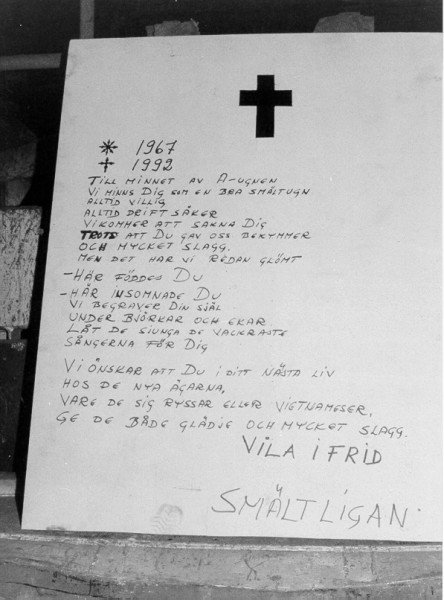 * 1967
✝ 1992
TILL MINNET AV A-UGNEN
VI MINNS DIG SOM EN BRA SMÄLTUGN
ALLTID VILLIG
ALLTID DRIFTSÄKER
VI KOMMER ATT SAKNA DIG
TROTS ATT DU GAV OSS BEKYMMER
OCH MYCKET SLAGG.
MEN DET HAR VI REDAN GLÖMT
-HÄR FÖDDES DU
-HÄR INSOMNADE DU
VI BEGRAVER DIN SJÄL
UNDER BJÖRKAR OCH EKAR
LÅT DE SJUNGA DE VACKRASTE
SÅNGERNA FÖR DIG
VI ÖNSKAR ATT DU I DITT NÄSTA LIV
HOS DE NYA ÄGARNA,
VARE DE SIG RYSSAR ELLER VIETNAMESER,
GE DE BÅDE GLÄDJE OCH MYCKET SLAGG.
VILA I FRID
SMÄLTLIGAN